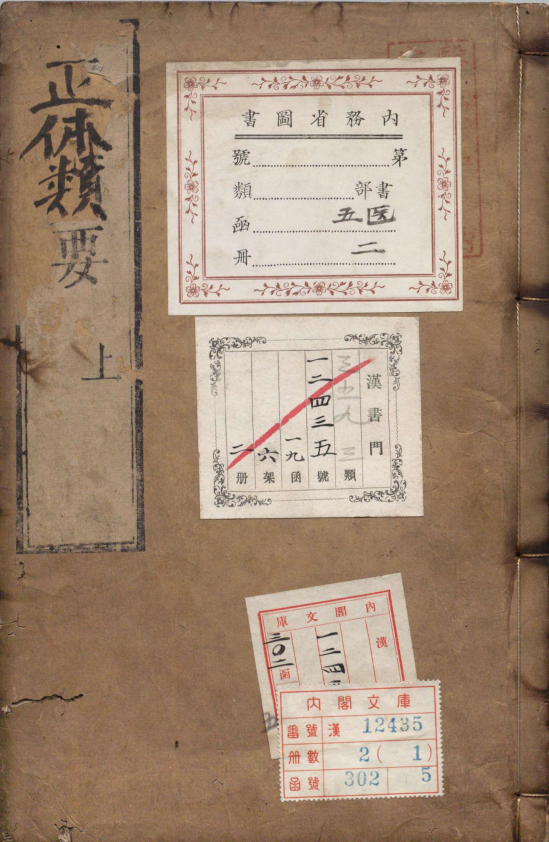 正体類要
上
内務省圖書
第 號
書部 類
医五 函
二 冊
漢書門
三 類
一二四三五 號
一九 函
六 架
二 册
内閣文庫
漢
一二四
三〇二 函
五
内閣文庫
番號 漢 12435
冊數 2 ( 1)
函號 302 5